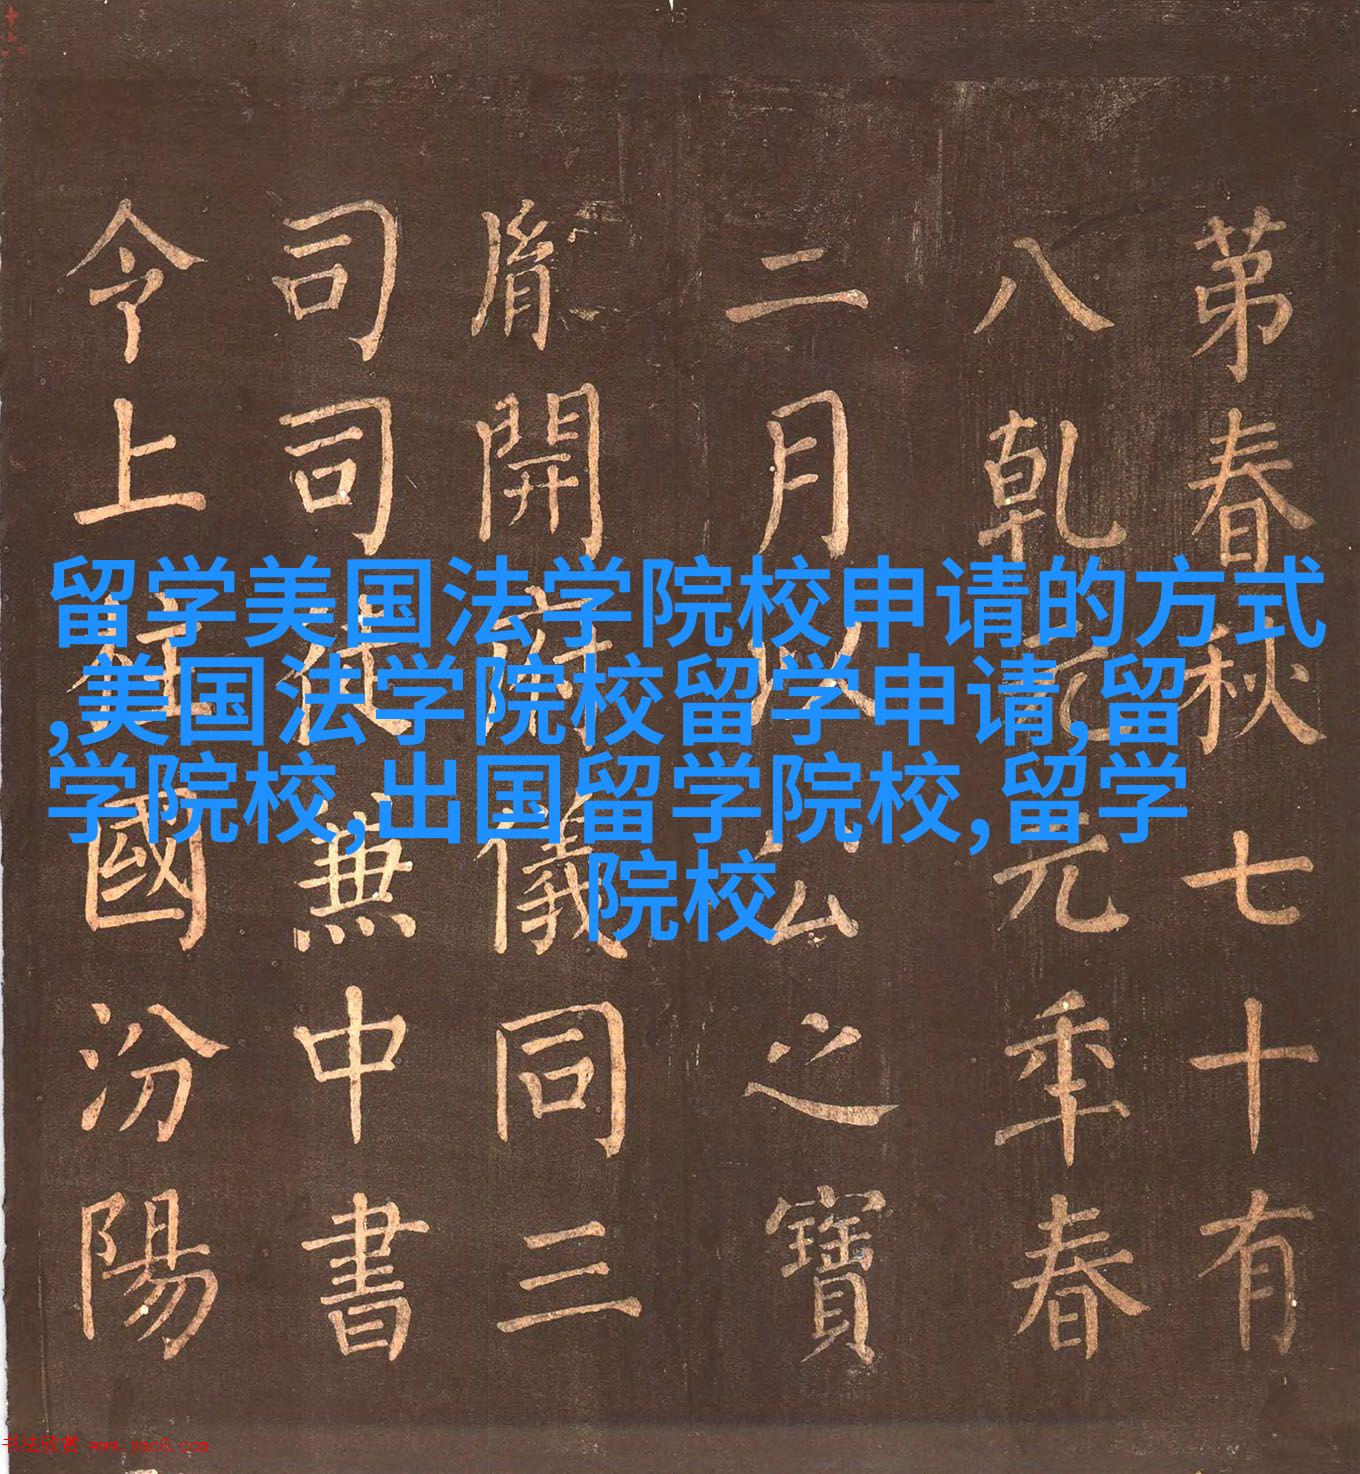 留学美国法学院校申请的方式
,美国法学院校留学申请,留
学院校,出国留学院校,留学
院校
苐春秋七十有
八乾元元年春
二月以公之寶
胤開府儀同三
司司徒兼中書
令上柱國汾陽
书法欣赏 www.yac8.com